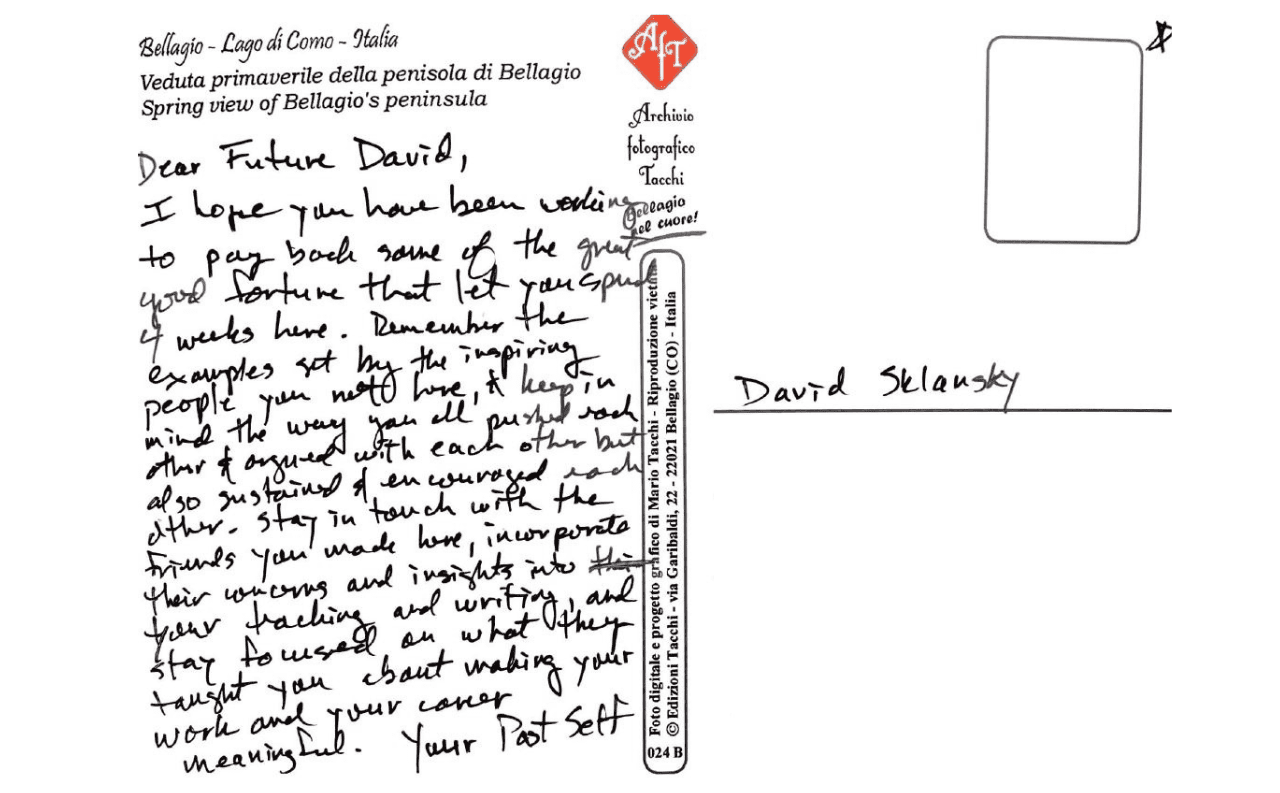 Bellagio - Lago di Como - Italia
Veduta primaverile della penisola di Bellagio
Spring view of Bellagio's peninsula
Dear Future David,
I hope you have been working
to pay back some of the great
good fortune that let you spend
4 weeks here. Remember the
examples set by the inspiring
people you met here, & keep in
mind the way you all pushed each
other & argued with each other but
also sustained & encouraged each
other. Stay in touch with the
friends you made here, incorporate
their concerns and insights into
your teaching and writing, and
stay focused on what they
taught you about making your
work and your career
meaningful. Your Past Self
AfT
Archivio
fotografico
Tacchi
Bellagio
nel cuore!
Foto digitale e progetto grafico di Mario Tacchi - Riproduzione vietata
© Edizioni Tacchi - via Garibaldi, 22 - 22021 Bellagio (CO) - Italia
024 B
David Sklansky